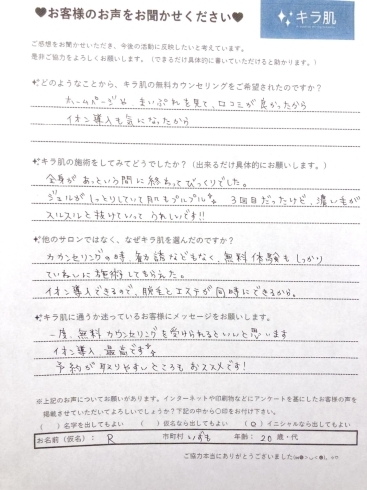 ♥お客様のお声をお聞かせください♥
キラ肌
ご感想をお聞かせいただき、今後の活動に反映したいと考えています。
是非ご協力をよろしくお願いします。（できるだけ具体的に書いていただけると助かります。）
どのようなことから、キラ肌の無料カウンセリングをご希望されたのですか？
ホームページや まいぷれを見て、口コミが良かったから
イオン導入も気になったから
キラ肌の施術をしてみてどうでしたか？（出来るだけ具体的にお願いします。）
全身があっという間に終わってびっくりでした。
ジェルがしっとりしていて肌もプルプル 3回目だったけど、濃い毛が
スルスルと抜けていって うれしいです!!
他のサロンではなく、なぜキラ肌を選んだのですか？
カウンセリングの時、勧誘などもなく、無料体験もしっかり
ていねいに施術してもらえた。
イオン導入できるので、脱毛とエステが同時にできるから。
キラ肌に通うか迷っているお客様にメッセージをお願いします。
一度、無料カウンセリングを受けられるといいと思います
イオン導入 最高です
予約が取りやすいところもおススメです!
※上記のお声についてお願いがあります。インターネットや印刷物などにアンケートを基にしたお客様の声を
掲載させていただいてよろしいでしょうか？下記の中から〇印をお付け下さい。
（　）名字を出してもよい （　）仮名なら出してもよい （〇）イニシャルなら出してもよい
お名前（仮名）： R 市町村 いずも 年齢： 20 歳・代
ご協力本当にありがとうございました